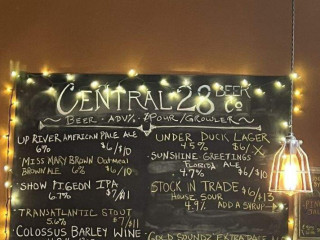 CENTRAL 28 BEER CO
BEER - ADV% - 4POUR/GROWLER
UP RIVER AMERICAN PALE ALE
6% $6/$10
MISS MARY BROWN Oatmeal
BROWN ALE 6% $6/$10
SHOW PIGEON IPA
6.7% $7/$11
TRANSATLANTIC STOUT
5.6% $7/$11
COLOSSUS BARLEY WINE
UNDER DUCK LAGER
4.5% $6/X
SUNSHINE GREETINGS
FLORIDA ALE
4.7% $6/$10
STOCK IN TRADE $6/$13
HOUSE SOUR
4.9% ADD A SYRUP
GOLD SOUNDZ EXTRA PALE